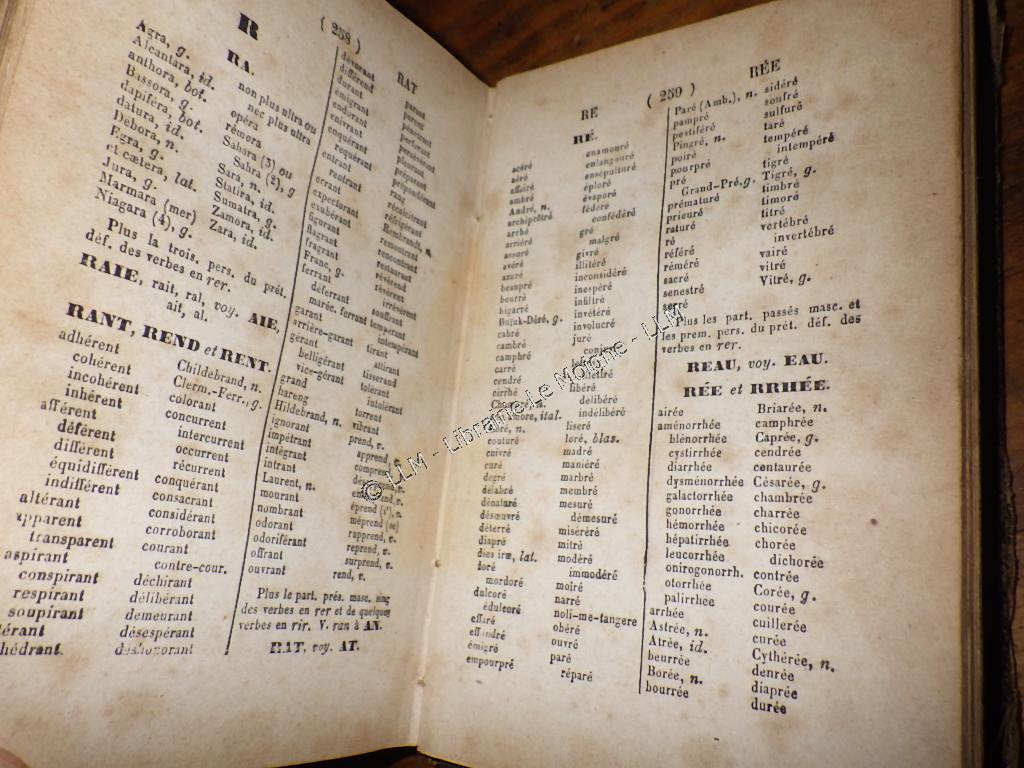 R
( 258 )
RAT
RA.
Agra, g.
Alcantara, id.
anthora, bot.
Bassora, g.
dapiféra, bot.
datura, id.
Débora, n.
Egra, g.
et cætera, lat.
Jura, g.
Marmara (mer)
Niagara (4), g.
non plus ultra ou
nec plus ultra
opéra
rémora
Sahara (3) ou
Sahra (2), g
Sara, n.
Statira, id.
Sumatra, g.
Zamora, id.
Zara, id.
Plus la trois. pers. du prét.
déf. des verbes en rer.
RAIE, rait, ral, voy. AIE,
ait, al.
RANT, REND et RENT.
adhérent
cohérent
incohérent
inhérent
afférent
déférent
différent
équidifférent
indifférent
altérant
apparent
transparent
aspirant
conspirant
respirant
soupirant
Childebrand, n.
Clerm.-Ferr., g.
colorant
concurrent
intercurrent
occurrent
récurrent
conquérant
consacrant
considérant
corroborant
courant
contre-cour.
déchirant
délibérant
demeurant
désespérant
déshonorant
dévorant
différend
durant
émigrant
endurant
enivrant
enquérant
requérant
entrant
rentrant
errant
expectorant
exubérant
figurant
flagrant
fragrant
Franc, g.
ferrant
déferrant
maréc. ferrant
garant
arrière-garant
gérant
belligérant
vice-gérant
grand
hareng
Hildebrand, n.
ignorant
impétrant
intégrant
intrant
Laurent, n.
mourant
nombrant
odorant
odoriférant
offrant
ouvrant
parant
parent
pénétrant
persévérant
pleurant
préparant
prépondérant
rang
récalcitrant
réfrigérant
Rembrandt, n.
remontrant
restaurant
révérend
révérent
irrévérent
souffrant
tempérant
intempérant
tirant
attirant
tisserand
tolérant
intolérant
torrent
vibrant
prend, v.
apprend, v.
éprend (s'), v.
méprend (se)
rapprend, v.
reprend, v.
surprend, v.
rend, v.
Plus le part. prés. masc. sing
des verbes en rer et de quelques
verbes en rir. V. ran à AN.
RAT, voy. AT.
RE
( 259 )
RÉE
RÉ.
acéré
aéré
affairé
ambré
André, n.
archiprêtré
arrhé
arriéré
assuré
avéré
azuré
beaupré
beurré
bigarré
Bujuk-Déré, g.
cabré
cambré
camphré
carré
cendré
cirrhé
couturé
cuivré
curé
degré
délabré
dénaturé
désœuvré
déterré
diapré
dies iræ, lat.
doré
mordoré
dulcoré
édulcoré
effaré
effondré
émigré
empourpré
enamouré
enlangouré
ensépulturé
éploré
évaporé
fédéré
confédéré
gré
malgré
givré
illitéré
inconsidéré
inespéré
infiltré
invétéré
involucré
juré
libéré
délibéré
indélibéré
liseré
loré, blas.
madré
maniéré
marbré
membré
mesuré
démesuré
miséréré
mitré
modéré
immodéré
moiré
narré
noli-me-tangere
obéré
ouvré
paré
réparé
Paré (Amb.), n.
pampré
pestiféré
Pingré, n.
poiré
pourpré
pré
Grand-Pré, g.
prématuré
prieuré
raturé
ré
référé
réméré
sacré
senestré
serré
sidéré
soufré
sulfuré
taré
tempéré
intempéré
tigré
Tigré, g.
timbré
timoré
titré
vertébré
invertébré
vairé
vitré
Vitré, g.
Plus les part. passés masc. et
les prem. pers. du prét. déf. des
verbes en rer.
REAU, voy. EAU.
RÉE et RRHÉE.
airée
aménorrhée
blénorrhée
cystirrhée
diarrhée
dysménorrhée
galactorrhée
gonorrhée
hémorrhée
hépatirrhée
leucorrhée
onirogonorrh.
otorrhée
palirrhée
arrhée
Astrée, n.
Atrée, id.
beurrée
Borée, n.
bourrée
Briarée, n.
camphrée
Caprée, g.
cendrée
centaurée
Césarée, g.
chambrée
charrée
chicorée
chorée
dichorée
contrée
Corée, g.
courée
cuillerée
curée
Cythérée, n.
denrée
diaprée
durée
© LLM - Librairie Le Moigne - LLM